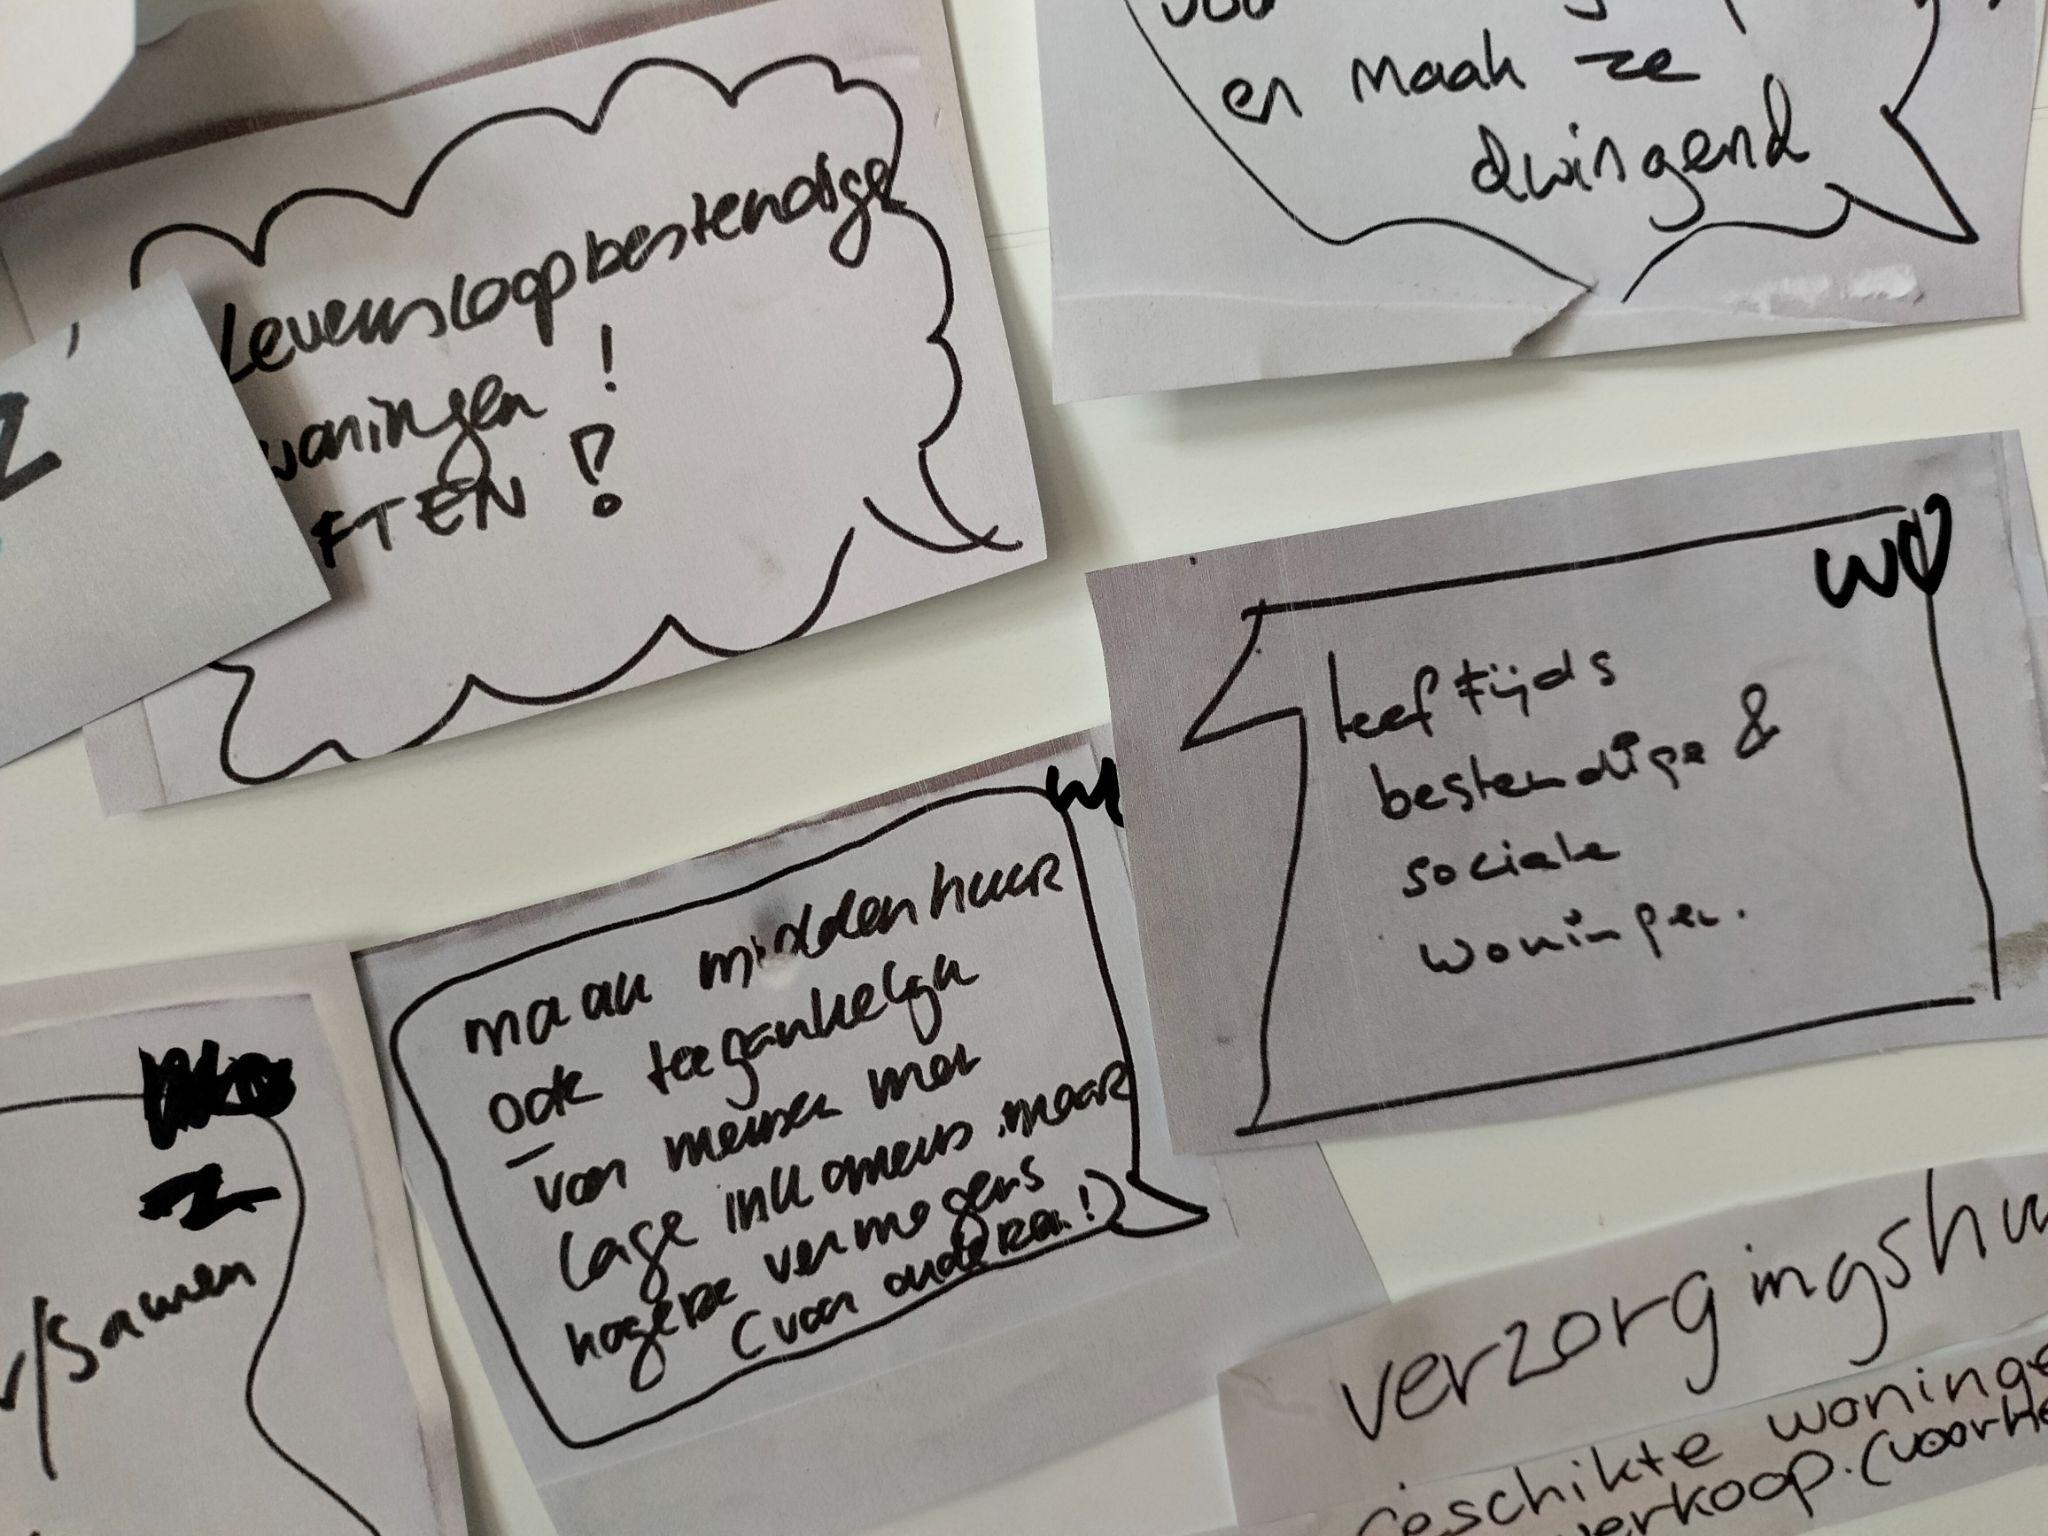 en maak ze
dwingend
Levensloopbestendige
woningen !
FTEN ?
Z
WO
leeftijds
bestendige &
sociale
woningen.
maak middenhuur
ook toegankelijk
voor mensen met
lage inkomens, maar
hogere vermogens
(van ouderen!)
r/Samen
verzorgingshu
geschikte woninge
verkoop. (voorke